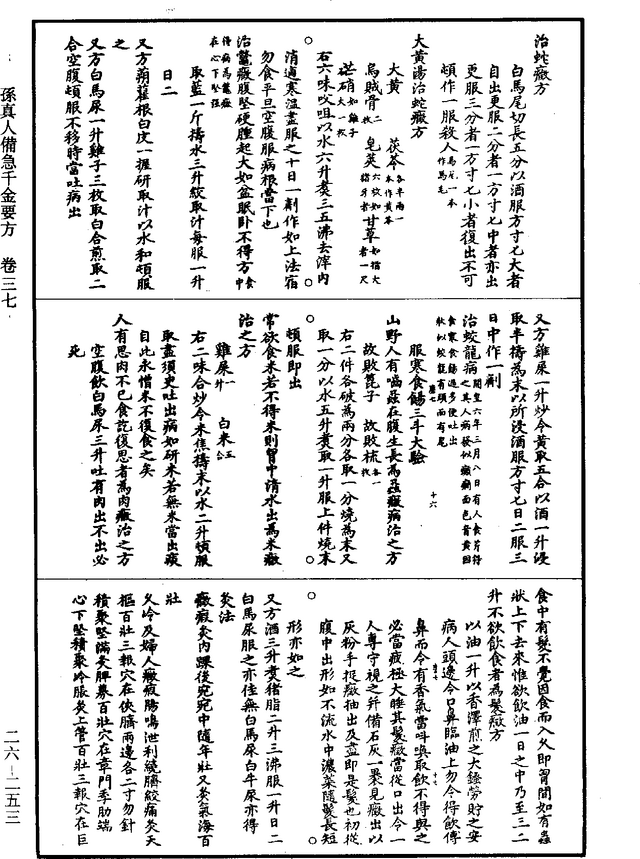 孫真人備急千金要方　卷三七
治蛇癥方
白馬尾切長五分以酒服方寸七大者
自出更服二分者一方寸七中者亦出
更服三分者一方寸七小者復出不可
頓作一服殺人馬尾一本作馬毛
大黃湯治蛇癥方
大黃　茯苓各半兩一本作黃芩
烏賊骨二枚　皂莢六枚如猪牙者　甘草如指大者一尺
芒硝如雞子大一枚
右六味㕮咀以水六升煑三五沸去滓內
消適寒溫盡服之十日一劑作如上法宿
勿食平旦空腹服病根當下也
治鱉癥腹堅硬腫起大如盆眠卧不得方食中得病為鱉癥在心下堅強
取藍一斤擣水三升絞取汁每服一升
日二
又方蒴藋根白皮一握研取汁以水和頓服
之
又方白馬尿一升雞子三枚取白合煎取二
合空腹頓服不移時當吐病出
又方雞屎一升炒令黃取五合以酒一升浸
取半擣為末以所浸酒服方寸七日二服三
日中作一劑
治蛟龍病開皇六年三月八日有人食芹得之其人病發似癲癎面色青黃因食寒食餳過多便吐出狀似蛟龍有頭面有尾
服寒食餳三斗大驗
山野人有嚙蝨在腹生長為蝨癥病治之方
故敗篦子　故敗梳各一枚
右二件各破為兩分各取一分燒為末又
取一分以水五升煑取一升服上件燒末
頓服即出
常欲食米若不得米則胷中清水出為米癥
治之方
雞屎一升　白米五合
右二味合炒令米焦擣末以水二升頓服
取盡須臾吐出病如研米若無米當出痰
自此永憎米不復食之矣
人有思肉不已食訖復思者為肉癥治之方
空腹飲白馬尿三升吐有肉出不出必
死
食中有髮不覺因食而入久即胷間如有蟲
狀上下去來惟欲飲油一日之中乃至三二
升不欲飲食者為髮癥方
以油一升以香澤煎之大鏒勞貯之安
病人頭邊令口鼻臨油上勿令得飲傅
鼻面令有香氣當叫喚取飲不得與之
必當疲極大睡其髮癥當從口出令一
人專守視之并備石灰一裹見癥出以
灰粉手捉癥抽出及盡即是髮也初從
腹中出形如不流水中濃菜隨髮長短
形亦如之
又方酒三升煑猪脂二升三沸服一升日二
白馬尿服之亦佳無白馬尿白牛尿亦得
灸法
癥瘕灸內踝後宛宛中隨年壯又灸氣海百
壯
久冷及婦人癥瘕腸鳴泄利繞臍絞痛灸天
樞百壯三報穴在俠臍兩邊各二寸勿針
積聚堅滿灸脾募百壯穴在章門季肋端
心下堅積聚冷脹灸上管百壯三報穴在巨
二六－二五三